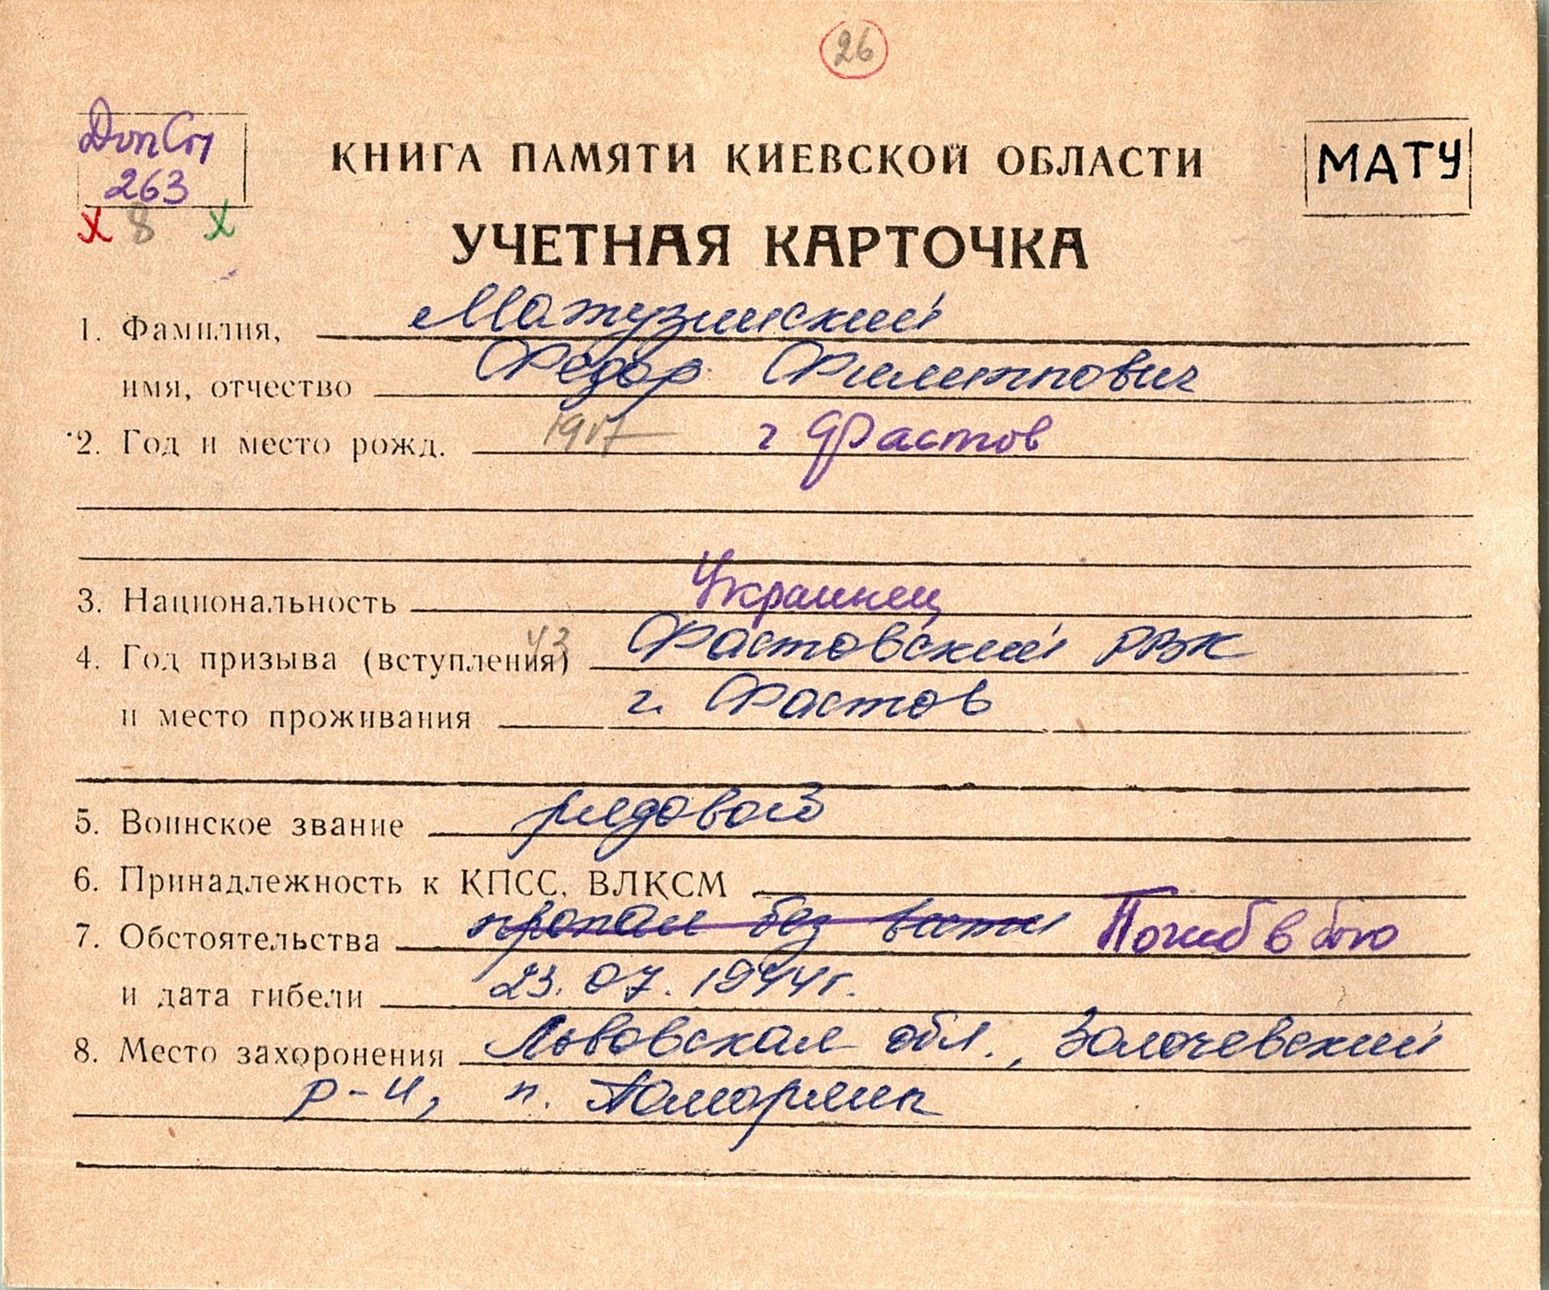 26
ДопСп
263
х 8 х
КНИГА ПАМЯТИ КИЕВСКОЙ ОБЛАСТИ
МАТУ
УЧЕТНАЯ КАРТОЧКА
1. Фамилия, Матузинский
имя, отчество Федор Филиппович
2. Год и место рожд. 1917 г Фастов
3. Национальность Украинец
4. Год призыва (вступления) 43 Фастовский РВК
и место проживания г. Фастов
5. Воинское звание рядовой
6. Принадлежность к КПСС, ВЛКСМ
7. Обстоятельства пропал без вести Погиб в бою
и дата гибели 23.07.1944г.
8. Место захоронения Львовская обл., Золочевский
р-н, п.